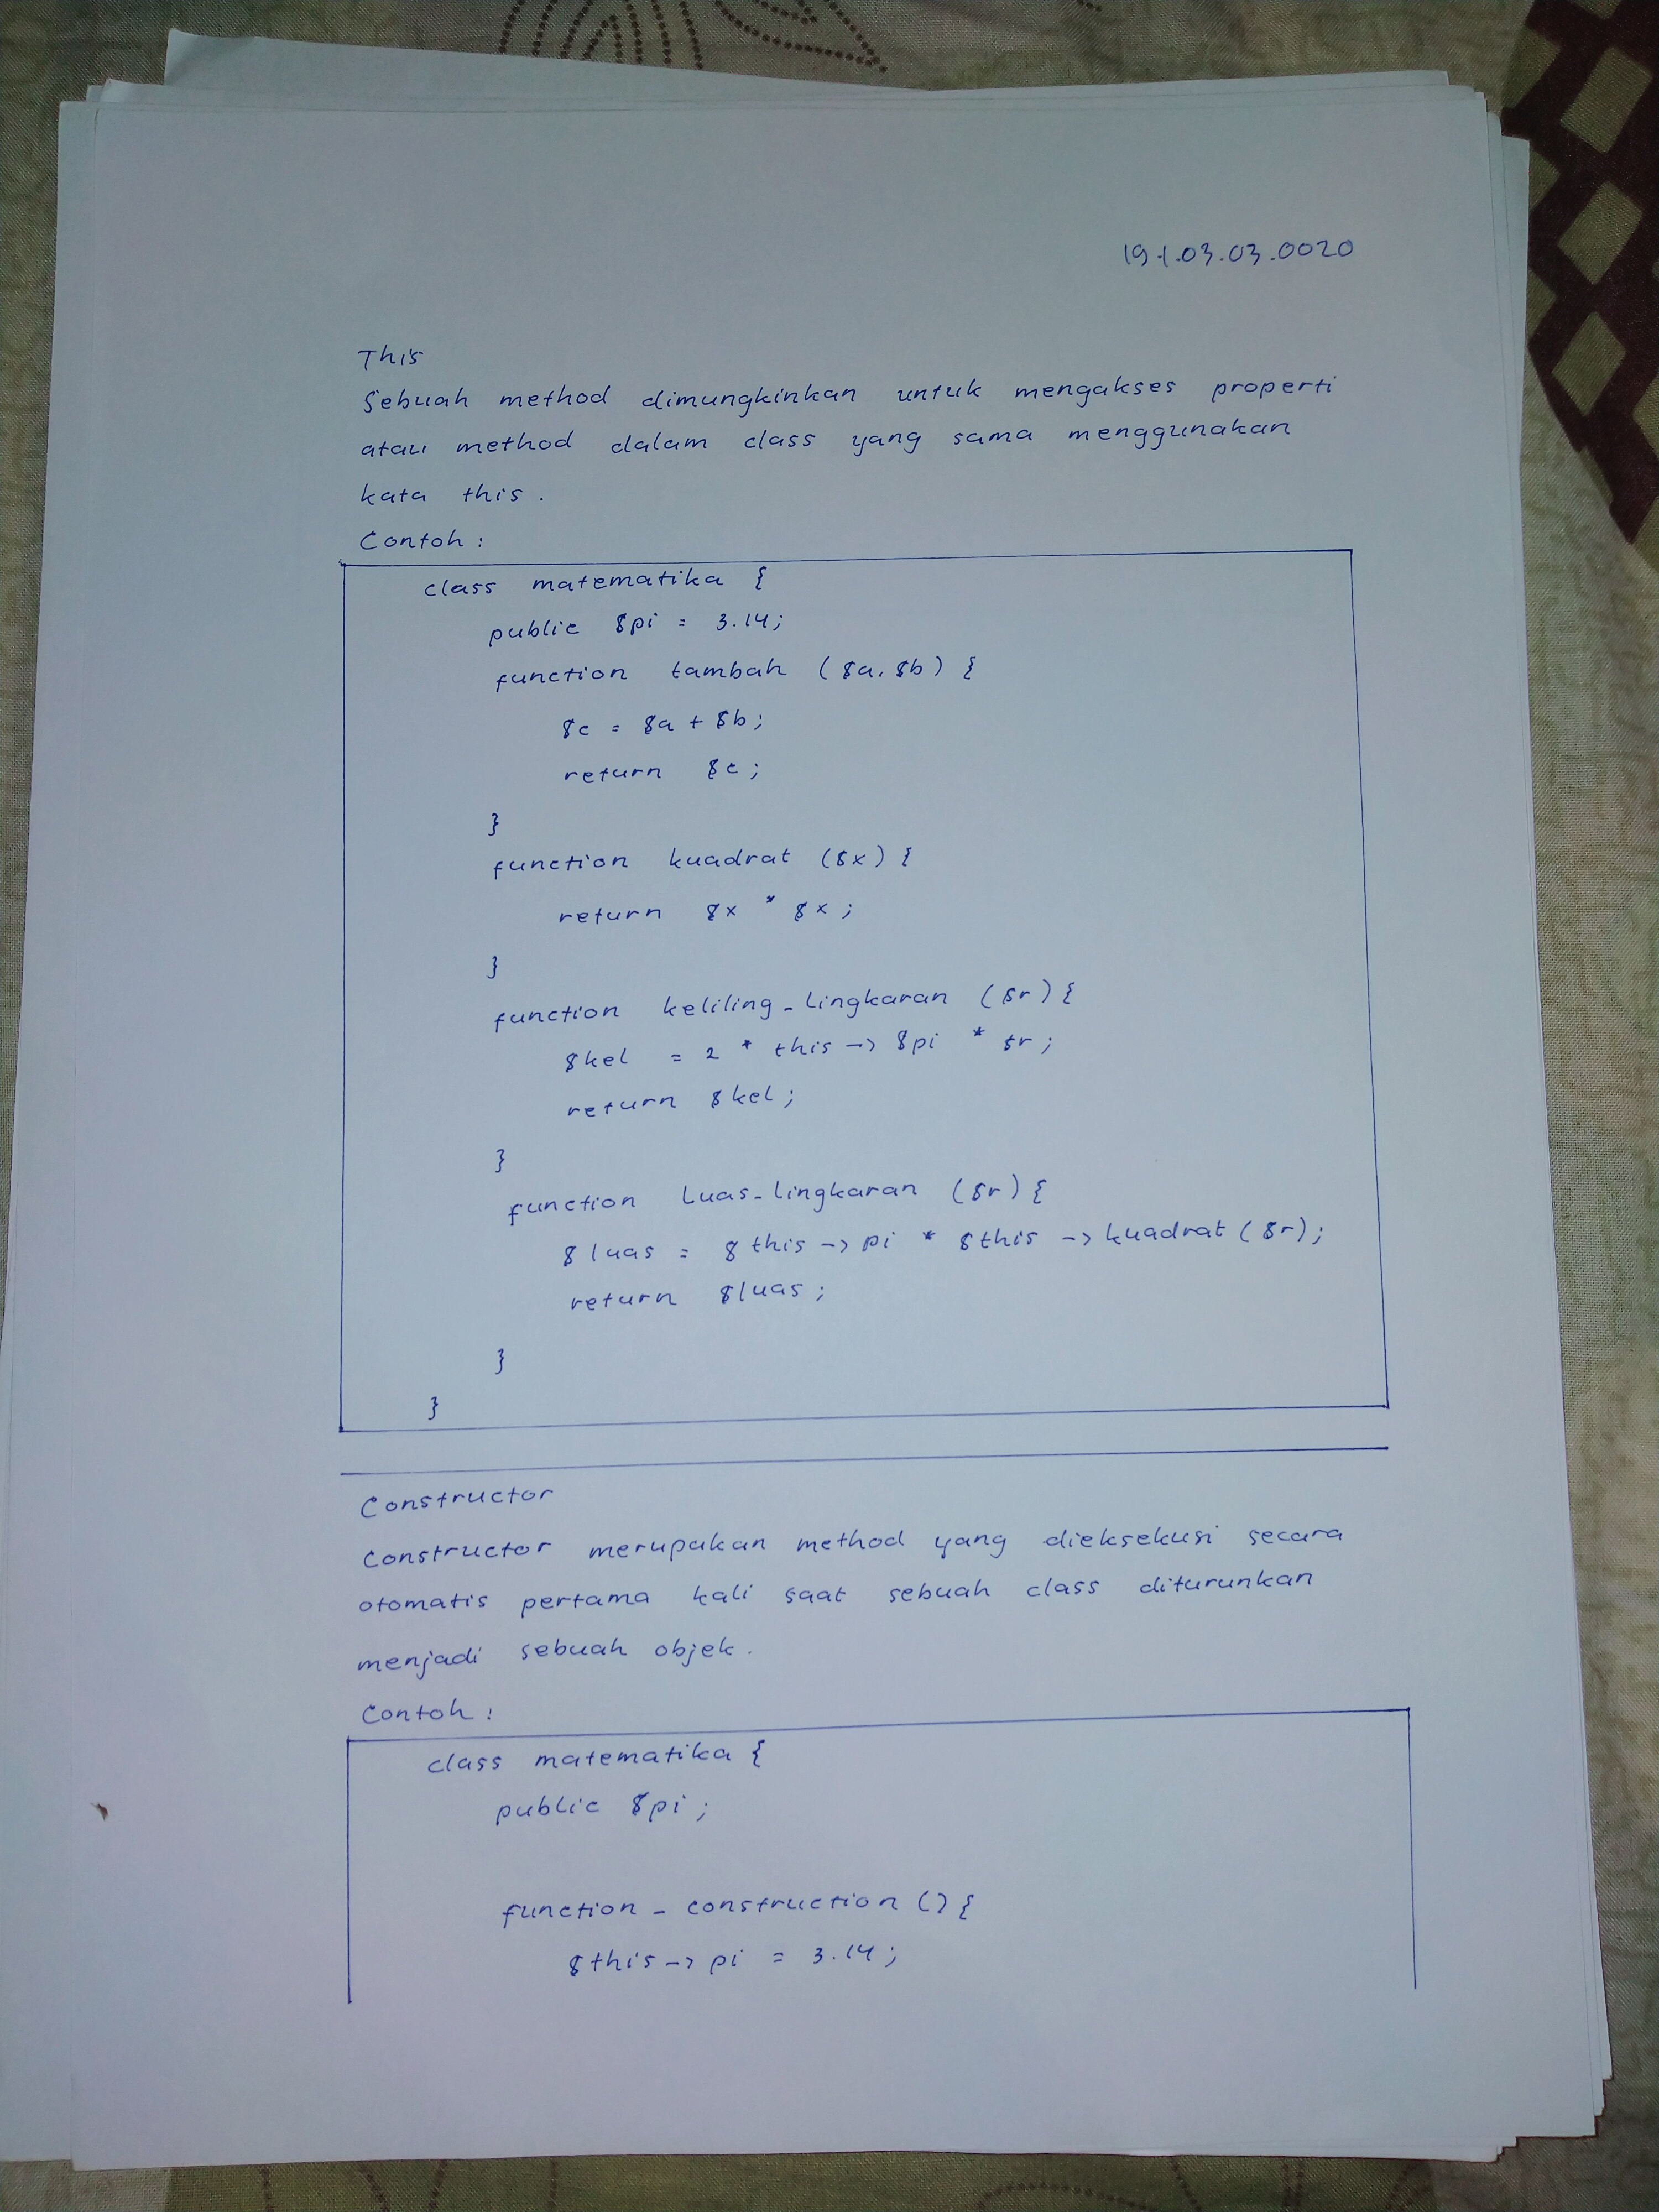 19.1.03.03.0020
This
Sebuah method dimungkinkan untuk mengakses properti
atau method dalam class yang sama menggunakan
kata this.
Contoh :
class matematika {
public $pi = 3.14;
function tambah ($a, $b) {
$c = $a + $b;
return $c;
}
function kuadrat ($x) {
return $x * $x;
}
function keliling_lingkaran ($r) {
$kel = 2 * this -> $pi * $r;
return $kel;
}
function Luas_lingkaran ($r) {
$luas = $this -> pi * $this -> kuadrat ($r);
return $luas;
}
}
Constructor
Constructor merupakan method yang dieksekusi secara
otomatis pertama kali saat sebuah class diturunkan
menjadi sebuah objek.
Contoh :
class matematika {
public $pi;
function _ construction () {
$this -> pi = 3.14;